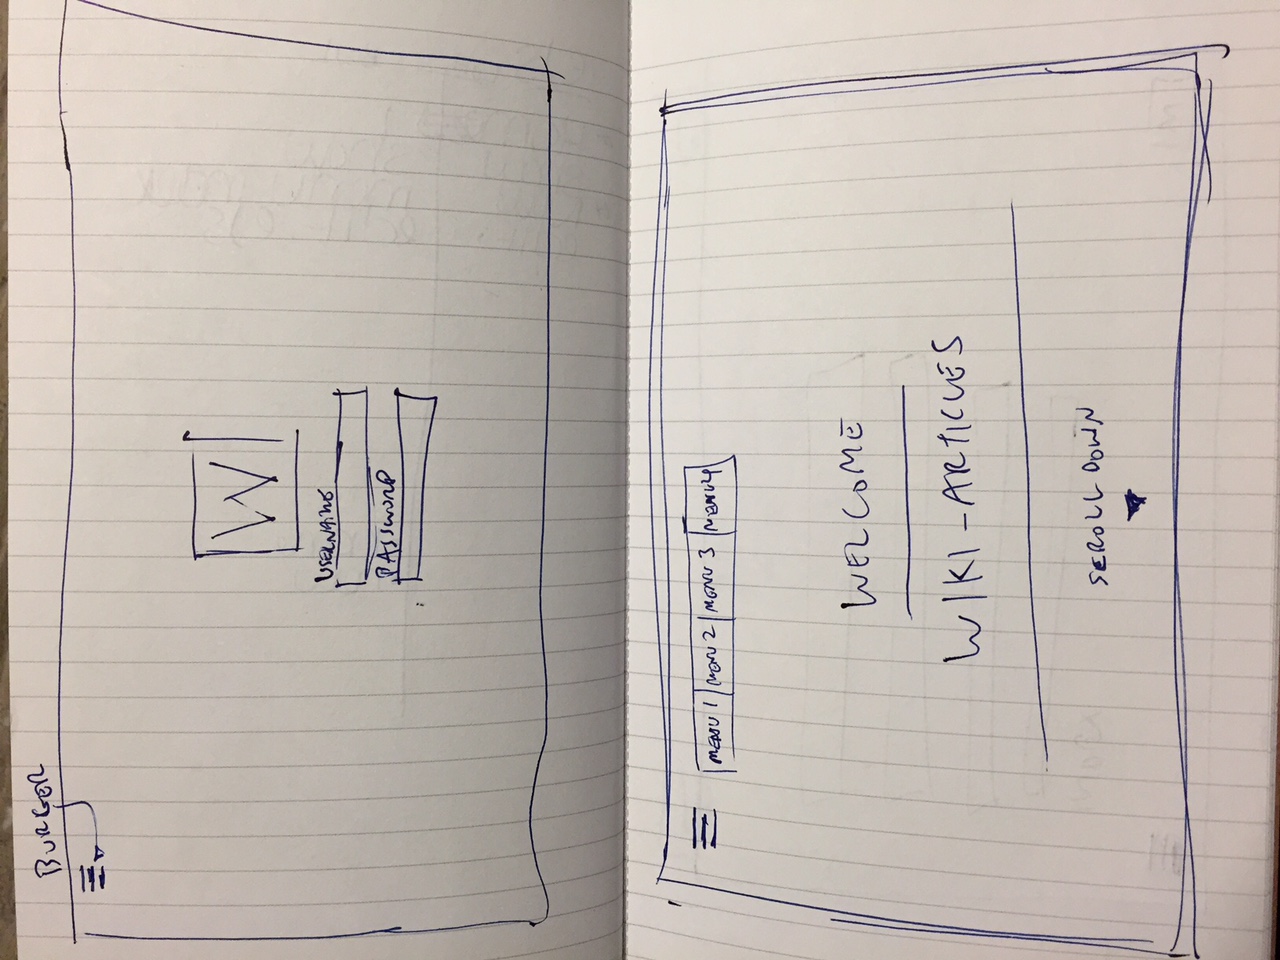 BURGER
W
USERNAME
PASSWORD
MENU 1 MENU 2 MENU 3 MENU 4
WELCOME
WIKI-ARTICLES
SCROLL DOWN